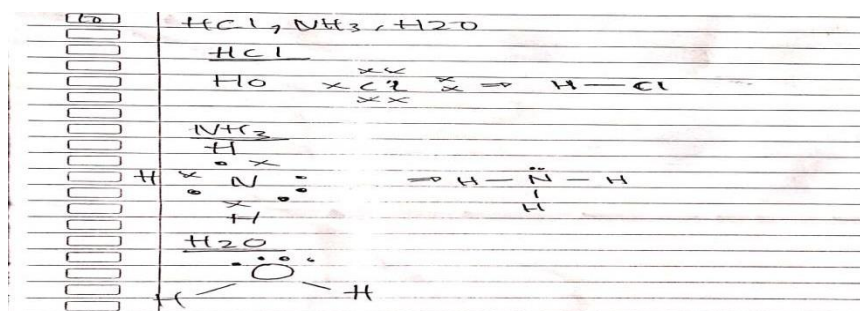 HCl, NH3, H2O
HCl
H० × Cl ⇒ H — Cl
NH3
H
H N ⇒ H — N̈ — H
H
H
H2O
O
H H